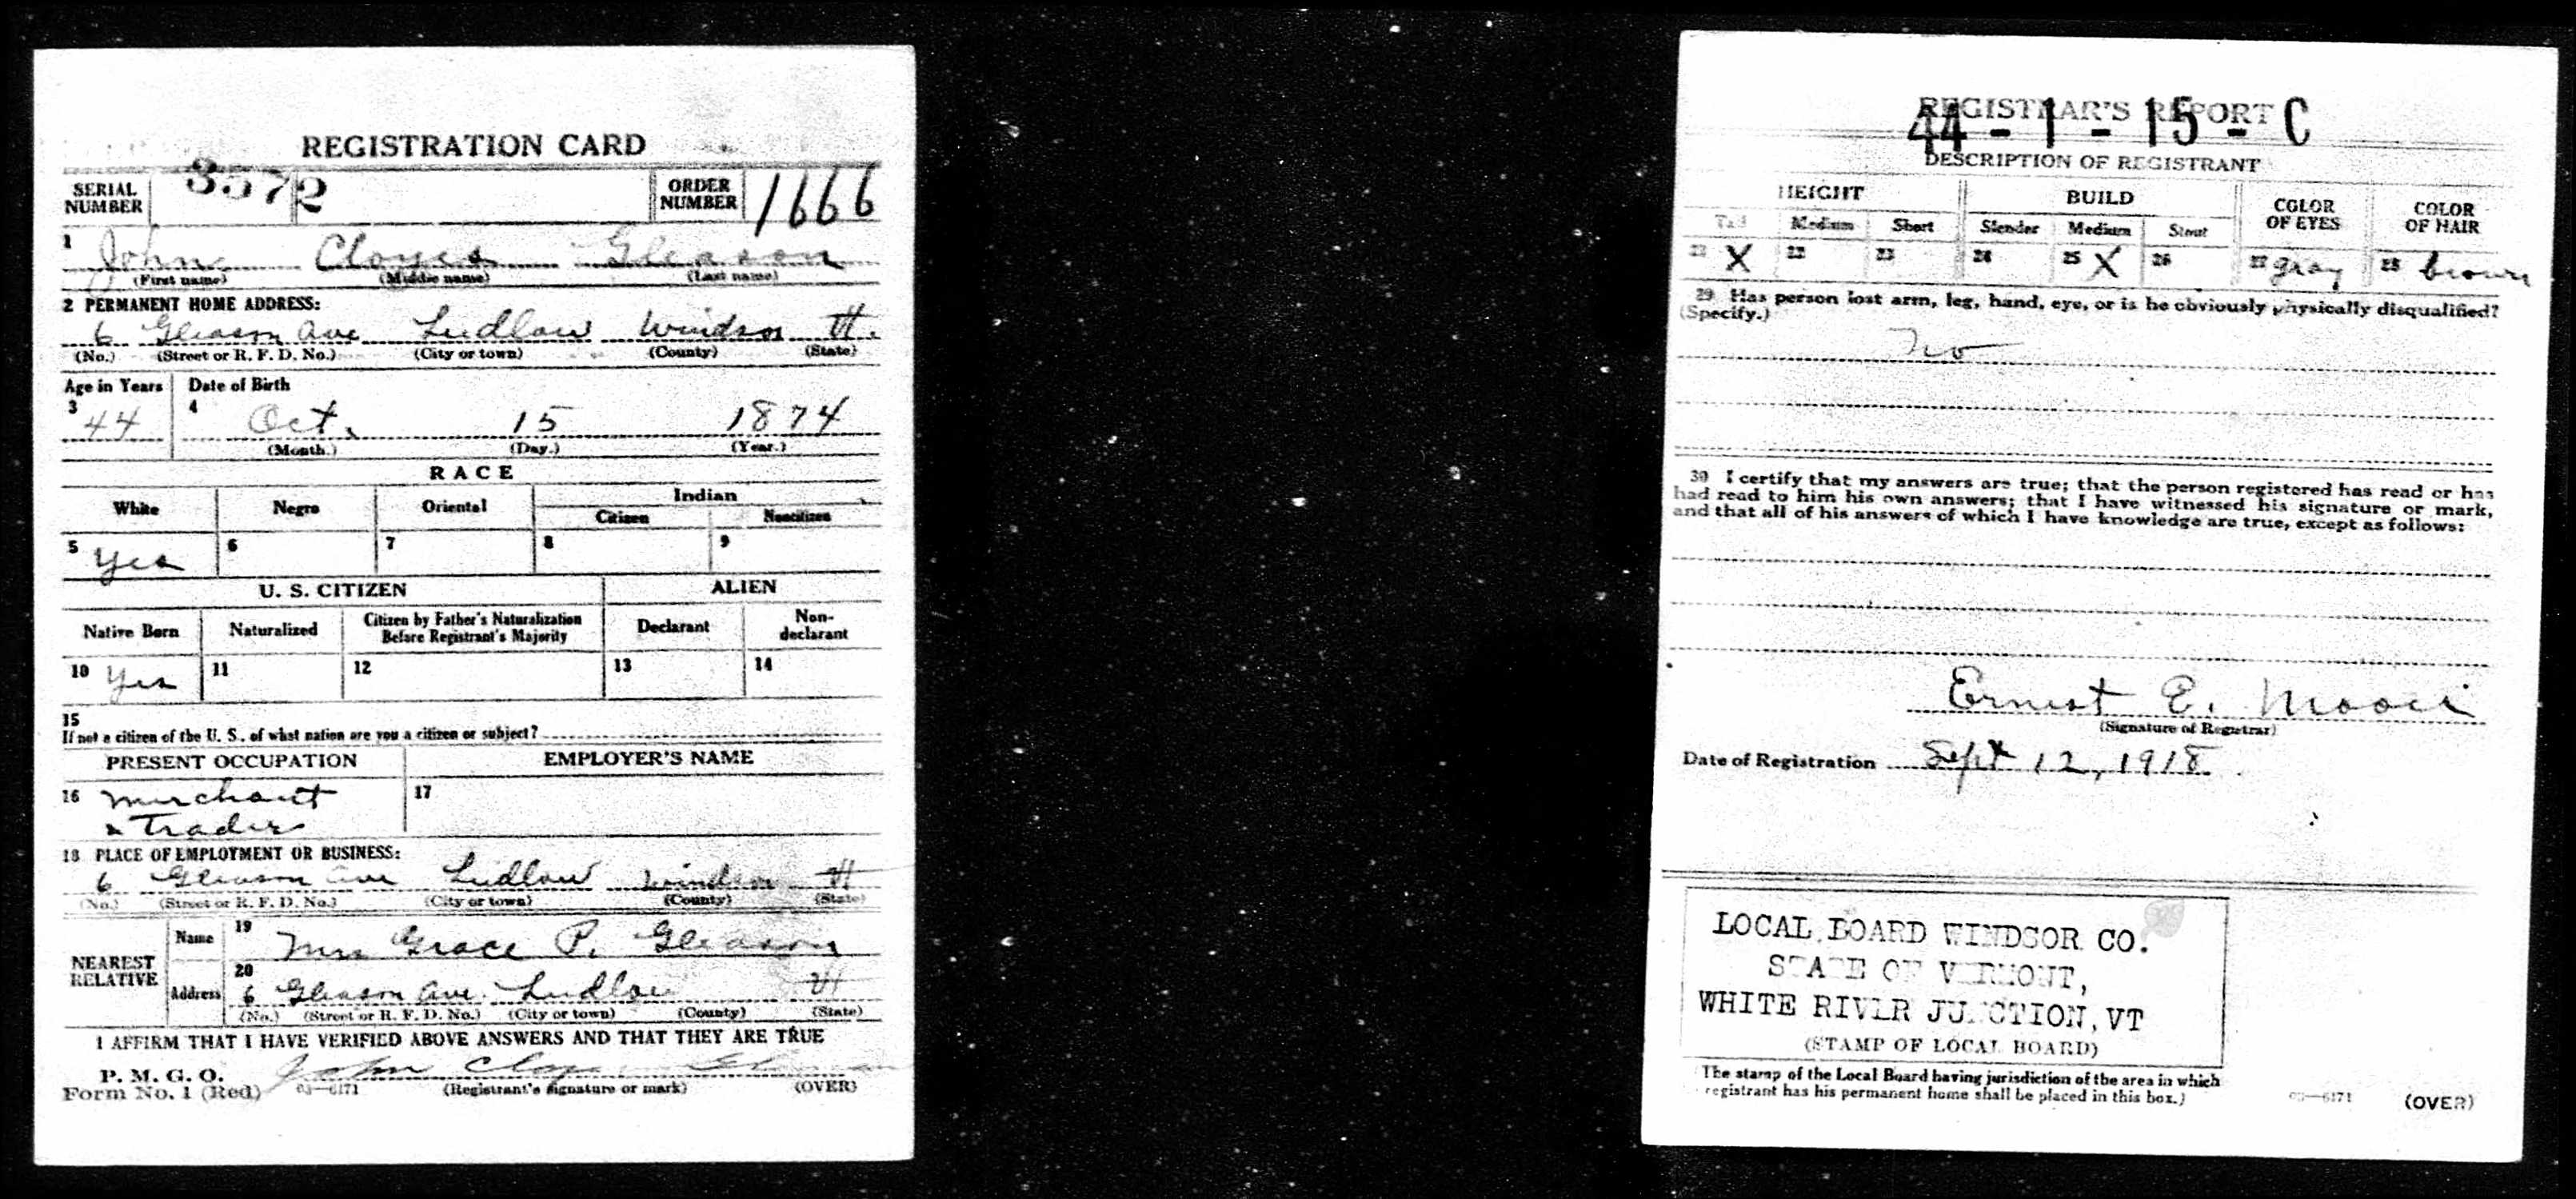 REGISTRATION CARD
SERIAL NUMBER 3572 ORDER NUMBER 1666
1 John Cloyes Gleason
(First name) (Middle name) (Last name)
2 PERMANENT HOME ADDRESS:
6 Gleason Ave Ludlow Windsor Vt.
(No.) (Street or R. F. D. No.) (City or town) (County) (State)
Age in Years Date of Birth
3 44 4 Oct. 15 1874
(Month.) (Day.) (Year.)
RACE
White Negro Oriental Indian
Citizen Noncitizen
5 Yes 6 7 8 9
U. S. CITIZEN ALIEN
Native Born Naturalized Citizen by Father's Naturalization Before Registrant's Majority Declarant Non-declarant
10 Yes 11 12 13 14
15
If not a citizen of the U. S., of what nation are you a citizen or subject?
PRESENT OCCUPATION EMPLOYER'S NAME
16 Merchant 17
& Trader
18 PLACE OF EMPLOYMENT OR BUSINESS:
6 Gleason Ave Ludlow Windsor Vt
(No.) (Street or R. F. D. No.) (City or town) (County) (State)
NEAREST RELATIVE
Name 19 Mrs Grace P. Gleason
Address 20 6 Gleason Ave. Ludlow Vt
(No.) (Street or R. F. D. No.) (City or town) (County) (State)
I AFFIRM THAT I HAVE VERIFIED ABOVE ANSWERS AND THAT THEY ARE TRUE
John Cloyes Gleason
P. M. G. O.
Form No. 1 (Red) 03—6171 (Registrant's signature or mark) (OVER)
REGISTRAR'S REPORT
44 - 1 - 15 - C
DESCRIPTION OF REGISTRANT
HEIGHT BUILD COLOR OF EYES COLOR OF HAIR
Tall Medium Short Slender Medium Stout
21 X 22 23 24 25 X 26 27 gray 28 brown
29 Has person lost arm, leg, hand, eye, or is he obviously physically disqualified?
(Specify.)
No
30 I certify that my answers are true; that the person registered has read or has
had read to him his own answers; that I have witnessed his signature or mark,
and that all of his answers of which I have knowledge are true, except as follows:
Ernest E. Moore
(Signature of Registrar)
Date of Registration Sept 12, 1918
LOCAL BOARD WINDSOR CO.
STATE OF VERMONT,
WHITE RIVER JUNCTION, VT
(STAMP OF LOCAL BOARD)
(The stamp of the Local Board having jurisdiction of the area in which
registrant has his permanent home shall be placed in this box.)
03—6171 (OVER)